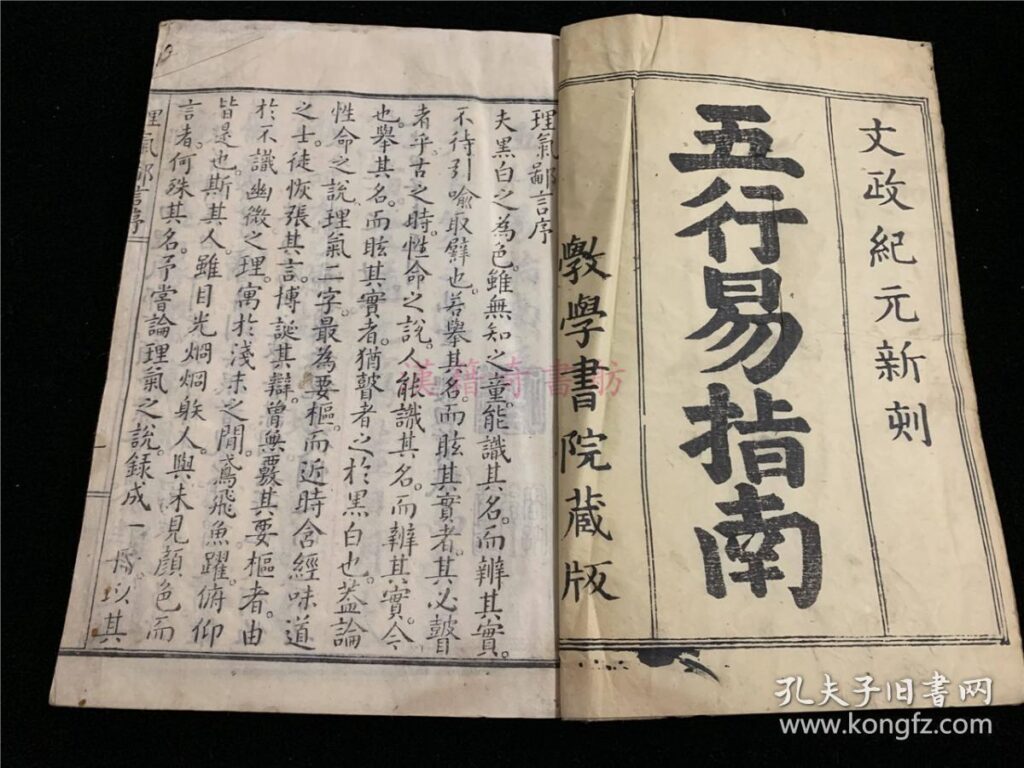 文政紀元新刻
五行易指南
斆學書院蔵版
理氣鄙言序
夫黑白之為色。雖無知之童。能識其名。而辨其實。
不待引喩取譬也。若舉其名。而眩其實者。其必瞽
者乎。古之時。性命之說。人能識其名。而辨其實。今
也。舉其名。而眩其實者。猶瞽者之於黑白也。蓋論
性命之說。理氣二字。最為要樞。而近時含經味道
之士。徒恢張其言。博誕其辯。曾無覈其要樞者。由
於不識幽微之理。寓於淺末之間。鳶飛魚躍。俯仰
皆是也。斯其人。雖目光烱烱躲人。與未見顏色而
言者。何殊其名。予嘗論理氣之說。録成一冊。以其
理氣鄙言序
漢籍奇書坊
孔夫子旧书网
www.kongfz.com